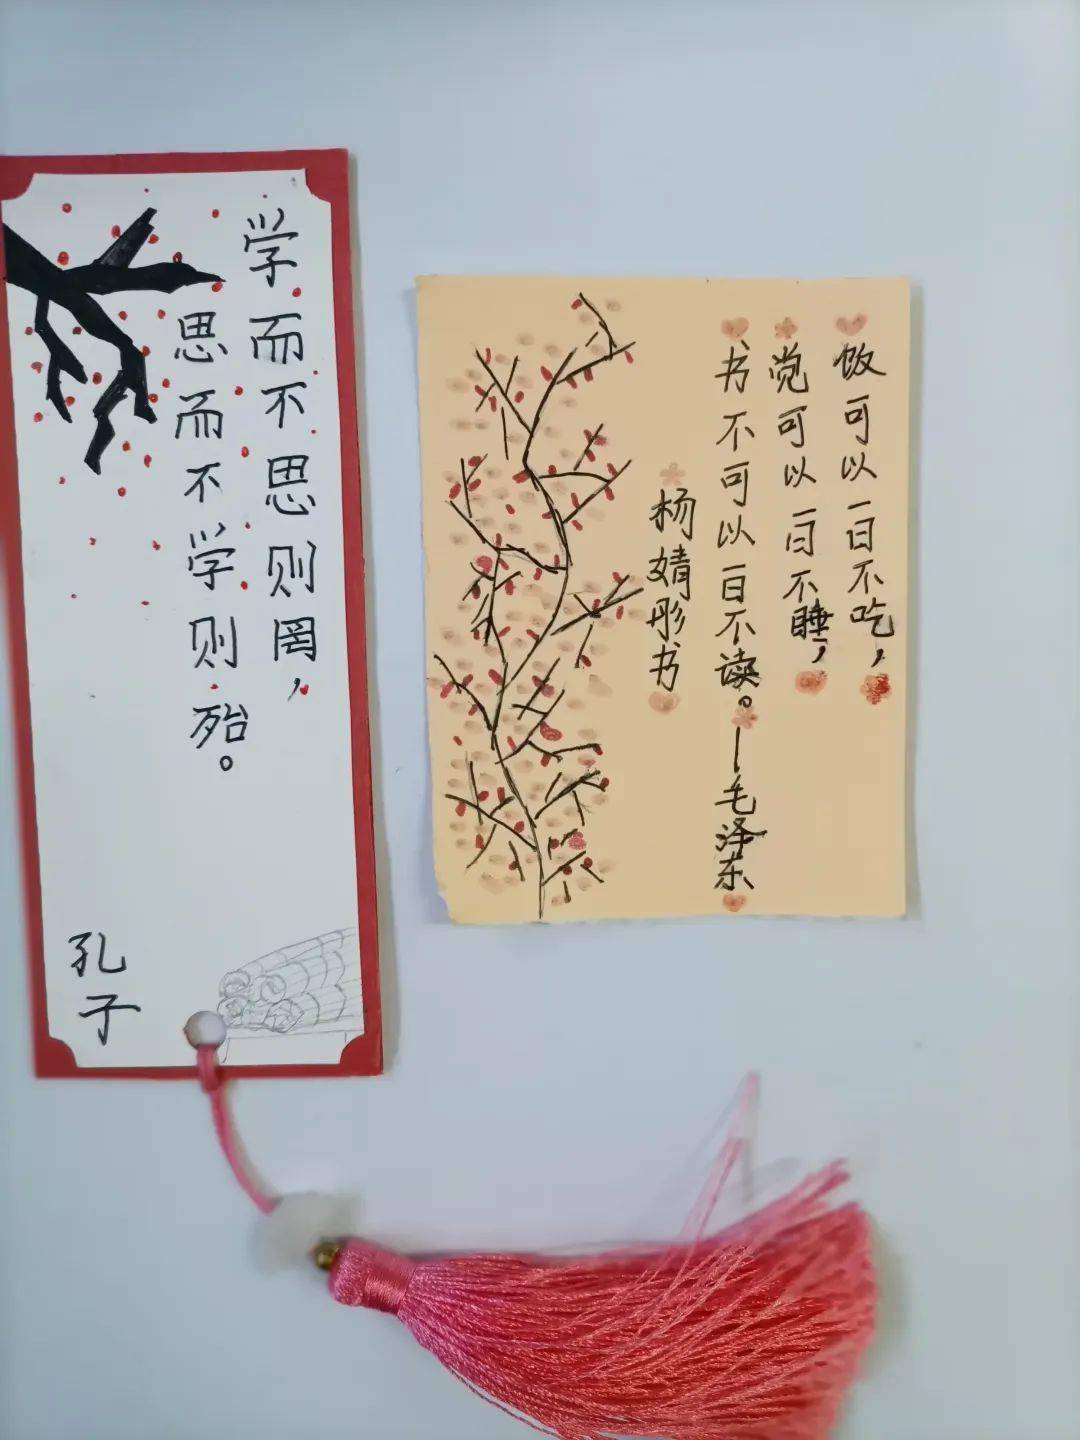 学而不思则罔，
思而不学则殆。
孔子
饭可以一日不吃，
觉可以一日不睡，
书不可以一日不读。—毛泽东
杨婧彤书